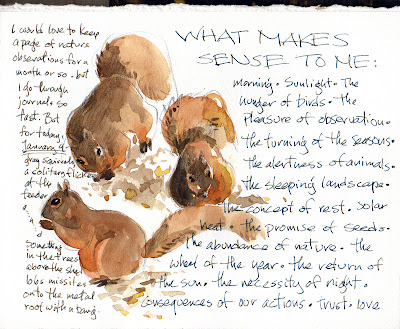 I would love to keep
a page of nature
observations for a
month or so - but
I do go through
journals so
fast. But
for today,
January 9
gray squirrels
a solitary flicker
at the
feeder
a
a
d
something
in the trees
above the shed
lobs missiles
onto the metal
roof with a bang.
WHAT MAKES
SENSE TO ME:
morning · Sunlight · The
hunger of birds · the
pleasure of observation ·
the turning of the seasons ·
the alertness of animals ·
the sleeping landscape ·
the concept of rest · solar
heat · the promise of seeds ·
the abundance of nature · the
wheel of the year · the return of
the sun · the necessity of night ·
consequences of our actions · Trust · love